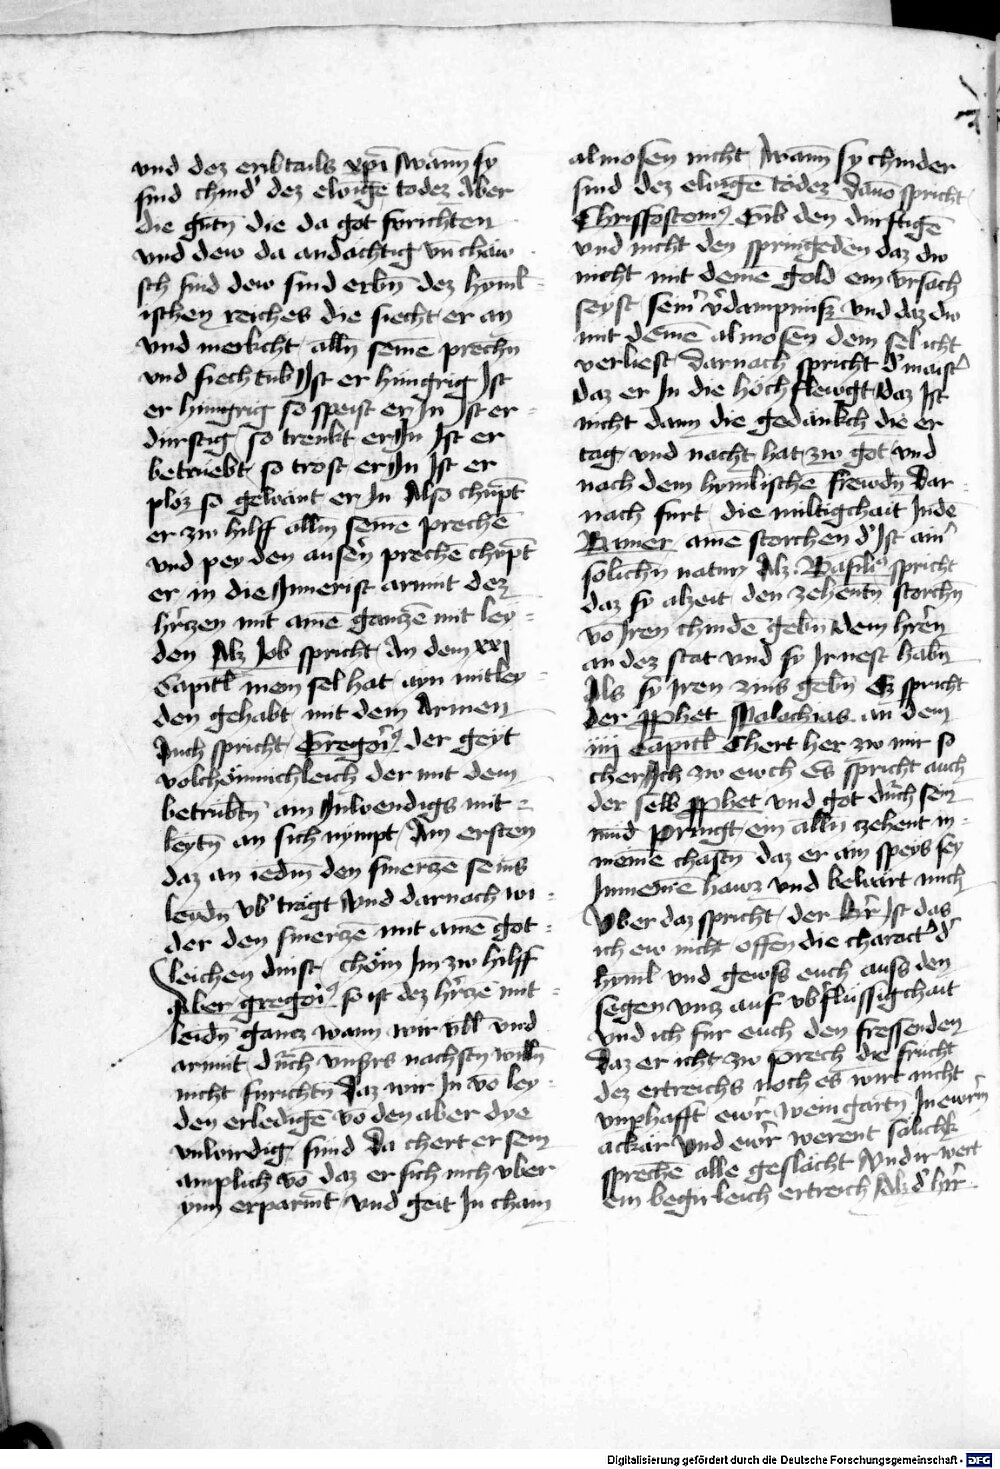 vnd dez eribtails xpī wann sy
sind chind' dez ewigē todez Aber
die gutn̄ die da got furichten
vnd dew da andachtig vn̄ chaw-
sch sind dew sind erbn̄ dez hyml-
ischen reiches die siecht er an
vnd merkcht alln̄ seinē prechn̄
vnd siechtub Ist er hungrig Ist
er hungrig so speist er In Ist er-
durstig so trenkt er In Ist er
betruebt so trost er In Ist er
ploz so gewant er In Also chupt̄
er zw hilff allm̄ seinē prechē
vnd pey den ausern̄ prechē chupt̄
er in die Innerist armut dez
hr̄czen mit ainē ganczē mit ley-
den Alz Job spricht An dem xxj
Capitl mein sel hat ayn mitley-
den gehabt mit dem Armen
Auch spricht Gregori9 der geyt
volchömmichleich der mit dem
betrubtn̄ ain Inwendigs mit-
leytn̄ an sich nympt Am ersten
daz an iedm̄ den smerczē seins
leydn̄ vb' tragt Vnd darnach wi-
der den smerczē mit ainē got-
leichen dinst chöm Im zw hilff
Aber gregori9 so ist dez hr̄czē mit-
leidn̄ gancz wann wir vbl vnd
armut durch vnsers nachstn̄ willn̄
nicht furichtn̄ Daz wir In vō ley-
den erledigē vō den aber dye
vnwirdig sind Da chert er sein
amplich vō daz er sich nich vber
ynn erparmt vnd geit In chain
almosen nicht Wann sy chinder
sind dez ewigē todez Dauō spricht
Chrissostom9 Gib den durftigē
vnd nicht den springedēn daz dw
nicht mit deinē gold ein vrsach
seyst seinr̄ v'dampnusz vnd daz dw
mit deinē almosen dein sel icht
verliest darnach spricht d' maist'
daz er In die höch flewgt Daz Ist
nicht dann die gedankch die er
tag vnd nacht hat zw got vnd
nach dem hymlischē frewdn̄ Dar-
nach furt die miltigchait In de
Baner aine storchen d' Ist ainr̄
solichn̄ natur Alz Basili9 spricht
daz sy alzeit den zehentn̄ storchn̄
vō Iren chindē gebn̄ dem hrēn
an dez stat vnd sy Ir nest habn̄
Als sy Iren zins gebn̄ Ez spricht
der pphet Malachias an dem
iiij Capitl Chert her zw mir so
cher Ich zw ewch Es spricht auch
der selb pphet vnd got durch sein
mūd Pringt ein alln̄ czehent in-
meinē chastn̄ daz er ain speys sey
In meinē hawz vnd bewart mich
Vber daz spricht der hr̄ Ist das
ich ew nicht offen die charact' d'
hyml vnd gewss euch auss den
segen vncz auf vb'flussigchait
vnd ich fur euch den fressenden
daz er icht zw prech die frucht
dez ertreichs noch es wirt nicht
vnphafft ewr̄ weingartn̄ In ewrm̄
ackar Vnd ewr̄ werent sälichk
sprechē alle geslächt Vnd ir wert
ein begirleich ertreich Alz d' hr̄
Digitalisierung gefördert durch die Deutsche Forschungsgemeinschaft - DFG